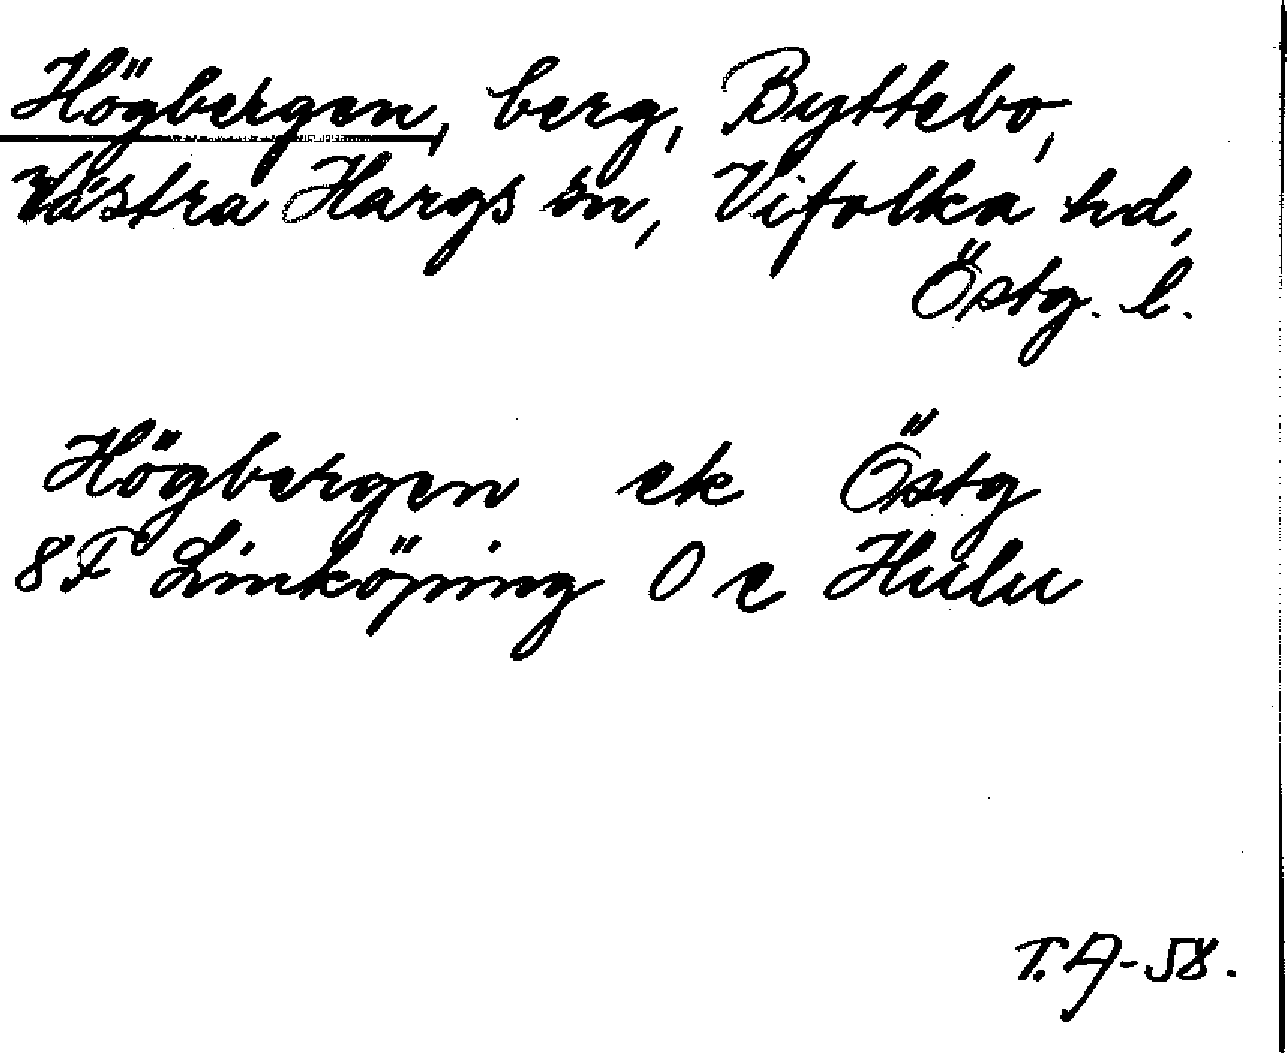 Högbergen, berg, Byttebo,
Västra Hargs sn, Vifolka hd,
Östg. l.
Högbergen ek Östg
8F Linköping 0 e Hulu
T.A-58.